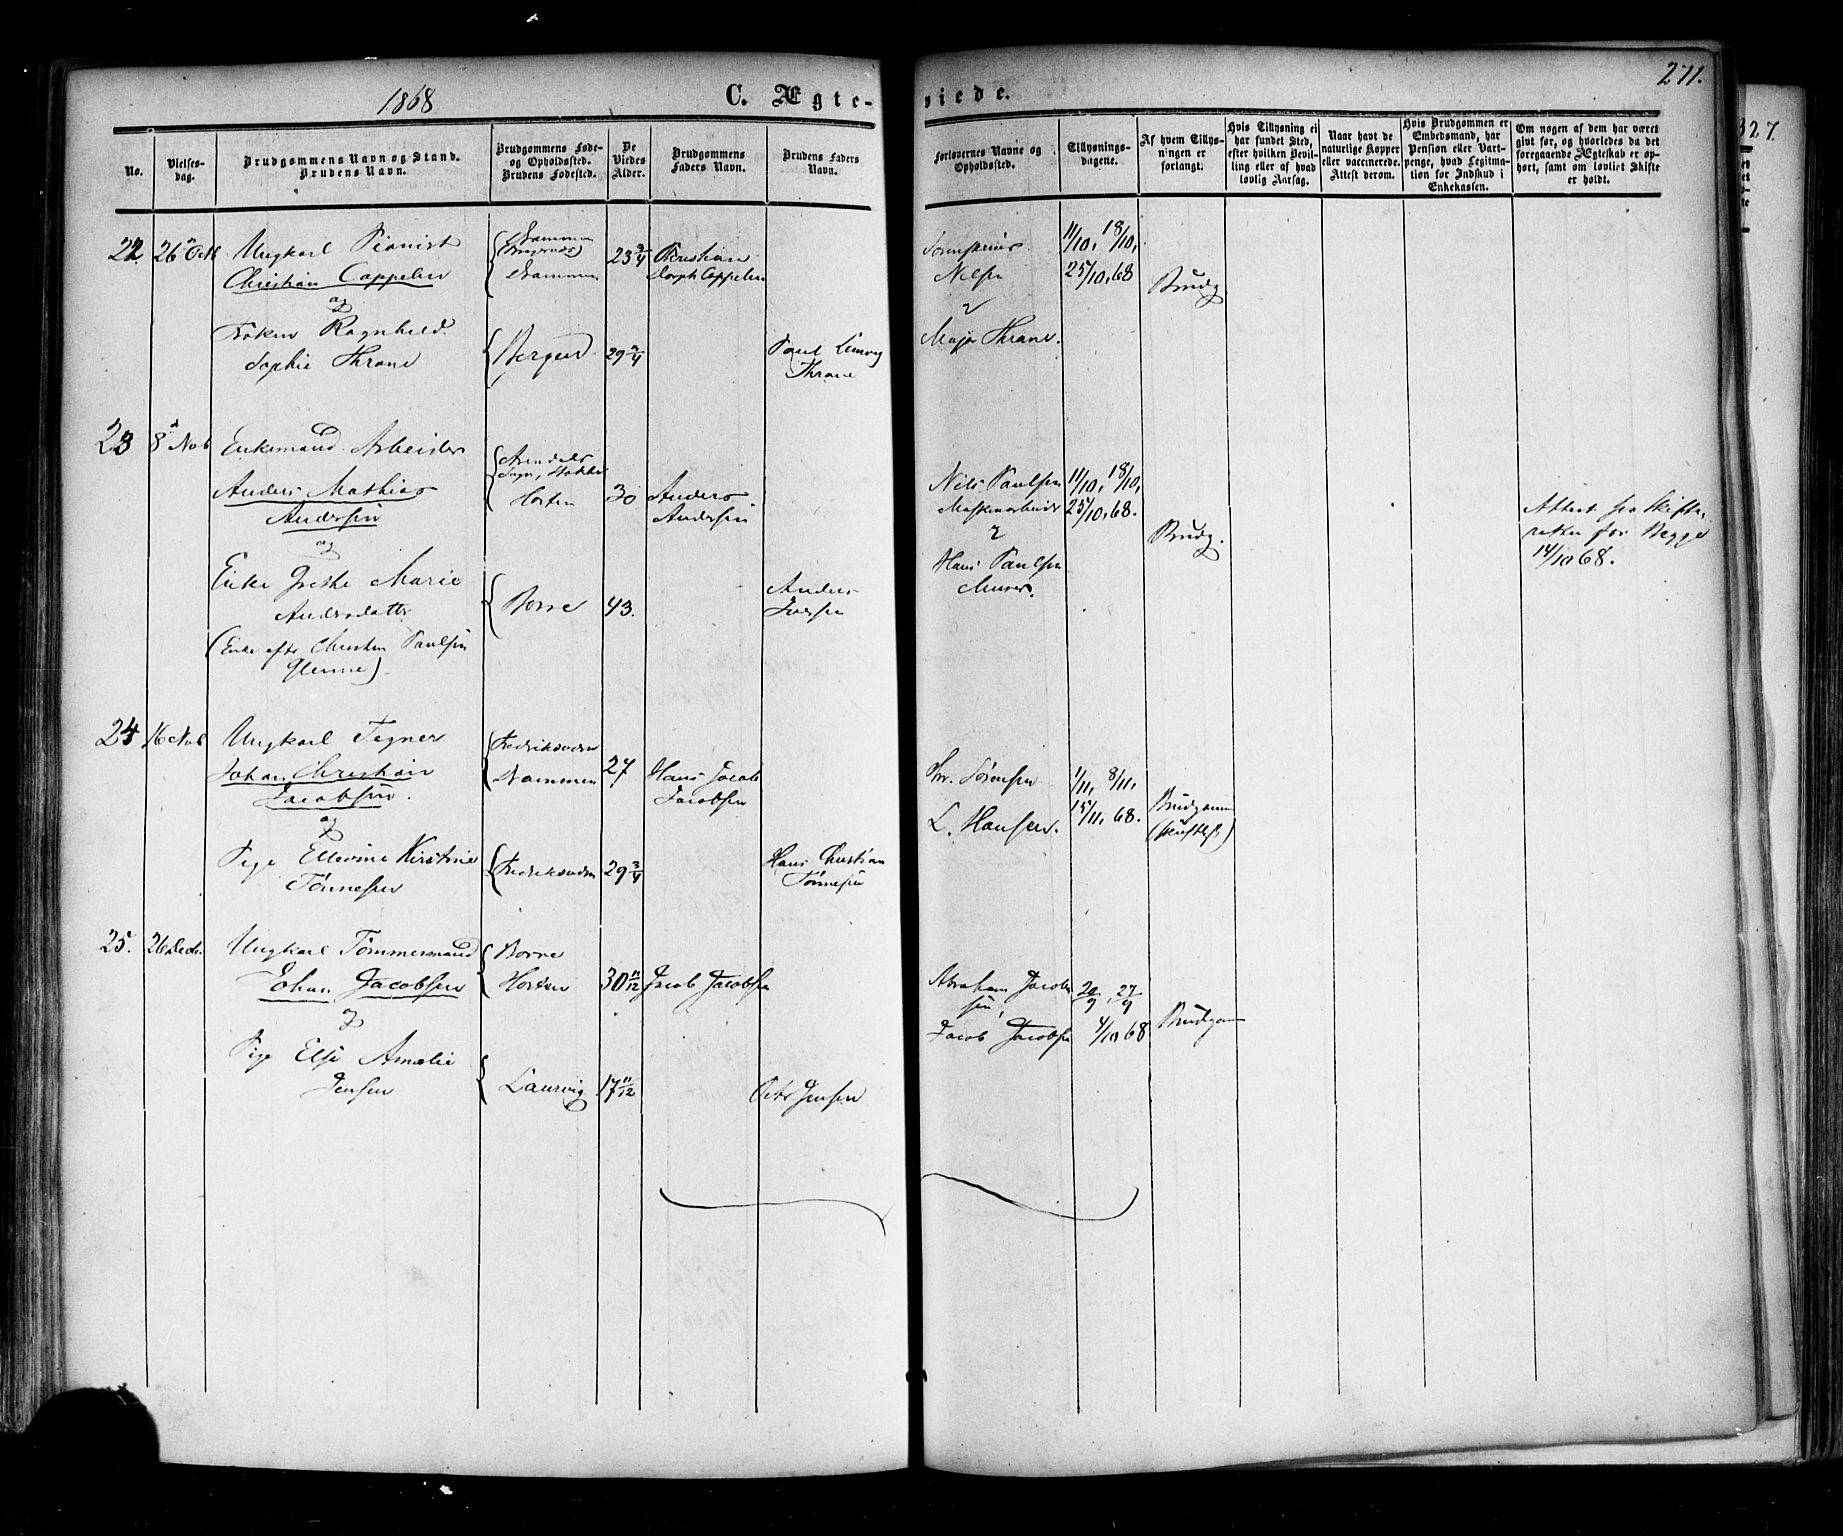 1868
C. Ægte-
viede.
271.
327.
No.
Vielses-
dag.
Brudgommens Navn og Stand.
Brudens Navn.
Brudgommens Føde-
og Opholdssted.
Brudens Fødested.
De
Viedes
Alder.
Brudgommens
Faders Navn.
Brudens Faders
Navn.
Forlovernes Navne og
Opholdssted.
Tillysnings-
dagene.
Af hvem Tillys-
ningen er
forlangt.
Hvis Tillysning ei
har fundet Sted,
efter hvilken Bevil-
ling eller af hvad
lovlig Aarsag.
Naar havt de
naturlige Kopper
eller vaccinerede.
Attest derom.
Hvis Brudgommen er
Embedsmand, har
Pension eller Vart-
penge, hvad Legitima-
tion for Indskud i
Enkekassen.
Om nogen af dem har været
gift før, og hvorledes da det
foregaaende Ægteskab er op-
hørt, samt om lovligt Skifte
er holdt.
22. 26 Oct
Ungkarl Pianist
Christian Cappelen
og
Frøken Ragnhild
Sophie Thrane
Drammen
Bragernæs
Drammen
Bergen
23 3/4
29 3/4
Christian
Dorph Cappelen
Paul Lemvig
Thrane
Nilsen
Major Thrane.
11/10, 18/10,
25/10, 68
Brudg.
23 8 Nob
Enkemand Arbeider
Anders Mathias
Andersen
og
Enke Grethe Marie
Andersdatter
(Enke efter Christen Paulsen
Glenne)
Arendals
Sogn,
Horten
Borre
30
43.
Anders
Andersen
Anders
Iversen
Nils Paulsen
Maskinarbeider
Hans Paulsen
Murer.
11/10, 18/10,
25/10, 68.
Brudg.
Attest fra Skifte-
retten for Begge
14/10 68.
24 16 Nob
Ungkarl Tegner
Johan Christian
Jacobsen.
og
Pige Ellevine Kirstine
Tønnesen
Fredriksværn
Drammen
Fredriksværn
27
29 3/4
Hans Jacob
Jacobsen
Hans Christian
Tønnesen
Sørensen
L. Hansen.
1/11, 8/11,
15/11, 68.
Brudgom
(skriftlig)
25. 26 Decb.
Ungkarl Tømmermand
Johan Jacobsen
og
Pige Else Amalie
Jensen
Borre
Horten
Laurvig
30 11/12
17 11/12
Jacob Jacobsen
Jensen
Abraham Jacob-
sen,
Jacob Jacobsen
20/9, 27/9
4/10 68
Brudgom